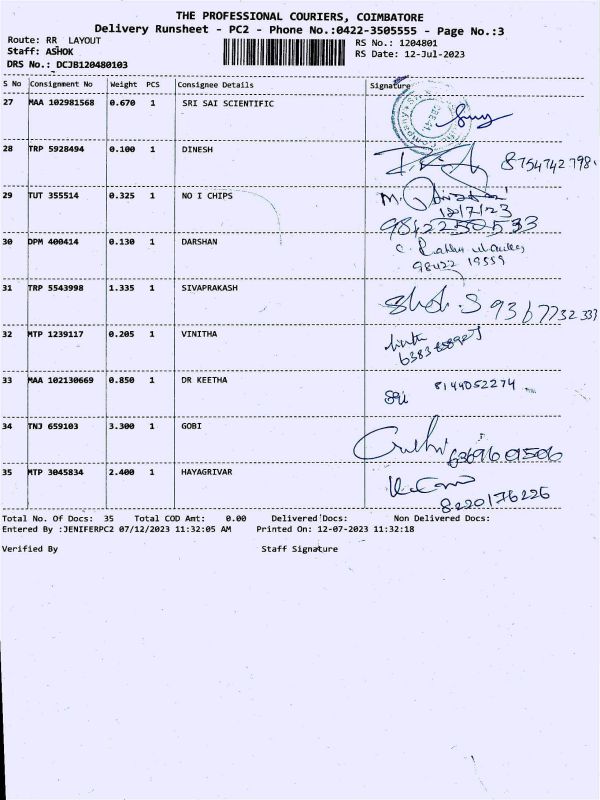 THE PROFESSIONAL COURIERS, COIMBATORE
Delivery Runsheet - PC2 - Phone No.:0422-3505555 - Page No.:3
Route: RR LAYOUT
RS No.: 1204801
Staff: ASHOK
RS Date: 12-Jul-2023
DRS No.: DCJB120480103
S No Consignment No Weight PCS Consignee Details Signature
27 MAA 102981568 0.670 1 SRI SAI SCIENTIFIC
28 TRP 5928494 0.100 1 DINESH 8754742798
29 TUT 355514 0.325 1 NO I CHIPS
12/7/23
9842250533
30 DPM 400414 0.130 1 DARSHAN
98422 19559
31 TRP 5543998 1.335 1 SIVAPRAKASH 9367732333
32 MTP 1239117 0.205 1 VINITHA
33 MAA 102130669 0.850 1 DR KEETHA 8144052274
34 TNJ 659103 3.300 1 GOBI
6369609506
35 MTP 3045834 2.400 1 HAYAGRIVAR
8220176226
Total No. Of Docs: 35 Total COD Amt: 0.00 Delivered Docs: Non Delivered Docs:
Entered By :JENIFERPC2 07/12/2023 11:32:05 AM Printed On: 12-07-2023 11:32:18
Verified By Staff Signature